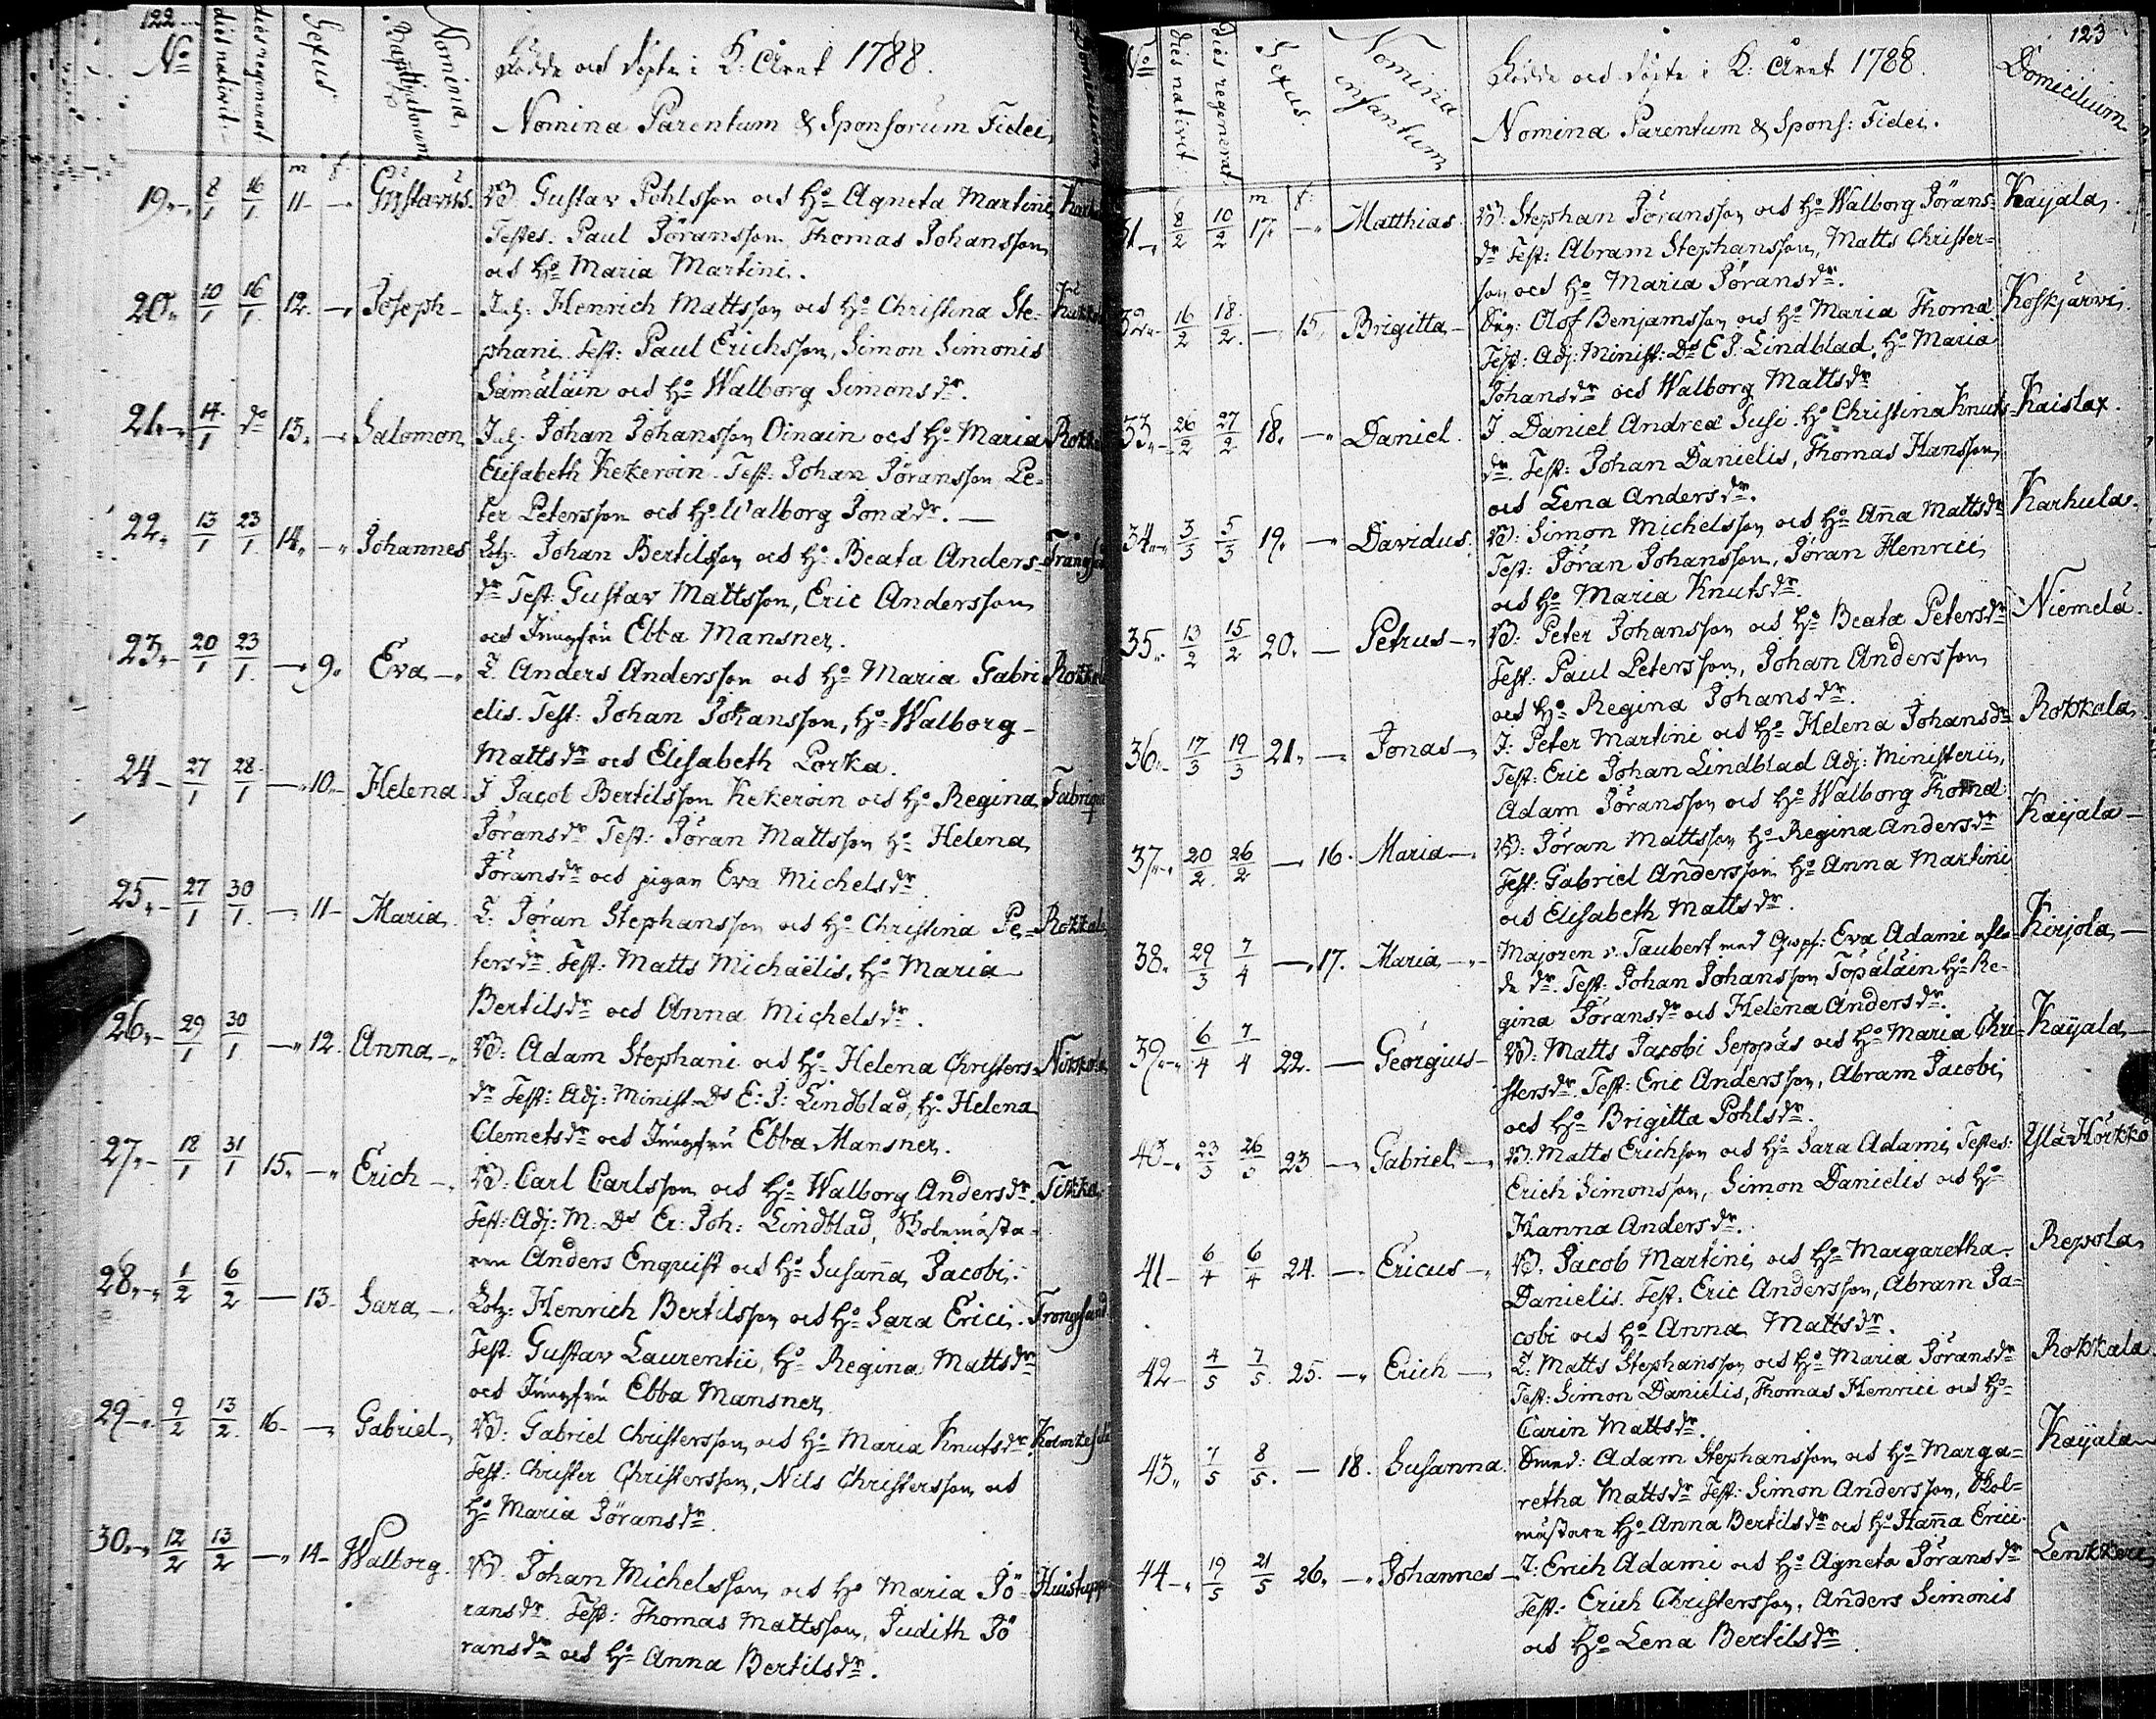 122
No dies nativit. dies regenerat. Sexus Nomina Baptizatorum
Födde och döpte i K: Året 1788.
Nomina Parentum & Sponsorum Fidei
m f
19 8/1 16/1 11 Gustavus. B. Gustav Pohlsson och Ho Agneta Martini
Testes. Paul Jöransson, Thomas Johansson
och Ho Maria Martini.
20 10/1 16/1 12. Joseph Inh: Henrich Mattsson och Ho Christina Ste-
phani. Test: Paul Erichsson, Simon Simonis
Sämäläin och Ho Walborg Simonsdr.
21 14/1 do 13. Salomon Inh: Johan Johansson Oinain och Ho Maria
Elisabeth Kekeroin. Test: Johan Jöransson Pe-
ter Petersson och Ho Walborg Jonædr.
22 13/1 23/1 14 Johannes Lotz: Johan Bertilsson och Ho Beata Anders-
dr Test: Gustav Mattsson, Eric Andersson
och Jungfru Ebba Mansner.
23 20/1 23/1 9. Eva I. Anders Andersson och Ho Maria Gabri
elis. Test: Johan Johansson, Ho Walborg
Mattsdr och Elisabeth Porka.
24 27/1 28/1 10 Helena I Jacob Bertilsson Kekeroin och Ho Regina
Jöransdr Test: Jöran Mattsson Ho Helena
Jöransdr och pigan Eva Michelsdr
25 27/1 30/1 11 Maria I: Jöran Stephansson och Ho Christina Pe-
tersdr. Test: Matts Michaëlis, Ho Maria
Bertilsdr och Anna Michelsdr.
26 29/1 30/1 12. Anna B: Adam Stephani och Ho Helena Christers
dr Test: Adj: Minist. Ds E: J: Lindblad, Ho Helena
Clemetsdr och Jungfru Ebba Mansner.
27 18/1 31/1 15 Erich B: Carl Carlsson och Ho Walborg Andersdr. Tikka
Test: Adj: M: Ds Er: Joh: Lindblad,
Anders Enquist och Ho Susanna Jacobi.
28 1/2 6/2 13. Sara Lotz: Henrich Bertilsson och Ho Sara Erici. Trongsund
Test. Gustav Laurentii, Ho Regina Mattsdr
och Jungfru Ebba Mansner
29 9/2 13/2 16 Gabriel B: Gabriel Christersson och Ho Maria Knutsdr
Test: Christer Christersson, Nils Christersson och
Ho Maria Jöransdr
30 12/2 13/2 14 Walborg. B. Johan Michelsson och Ho Maria Jö-
ransdr. Test: Thomas Mattsson, Judith Jö
ransdr och Ho Anna Bertilsdr.
123
No dies nativit. dies regenerat. Sexus. Nomina infantum
Födde och döpte i K: Året 1788.
Nomina Parentum & Spons: Fidei.
Domicilium
m. f:
31 8/2 10/2 17. Matthias B: Stephan Jöransson och Ho Walborg Jörans- Kaijala
dr Test: Abram Stephansson, Matts Christer-
son och Ho Maria Jöransdr.
32 16/2 18/2 15. Brigitta Olof Benjamsson och Ho Maria Thomæ Koskjärwi
Test: Adj: Minist: Ds E J: Lindblad, Ho Maria
Johansdr och Walborg Mattsdr
33 26/2 27/2 18. Daniel. I. Daniel Andreæ Susi. Ho Christina Knuts- Kaislax.
dr. Test: Johan Danielis, Thomas Hansson
och Lena Andersdr.
34 3/3 5/3 19. Davidus. B: Simon Michelsson och Ho Anna Mattsdr Karhula.
Test: Jöran Johansson, Jöran Henrici
och Ho Maria Knutsdr.
35 13/2 15/2 20. Petrus B: Peter Johansson och Ho Beata Petersdr Niemelä.
Test: Paul Petersson, Johan Andersson
och Ho Regina Johansdr.
36 17/3 19/3 21. Jonas I: Peter Martini och Ho Helena Johansdr Rokkala
Test: Eric Johan Lindblad Adj: Ministerii,
Adam Jöransson och Ho Walborg Thomæ
37 20/2 26/2 16. Maria B: Jöran Mattsson Ho Regina Andersdr Kaijala
Test: Gabriel Andersson Ho Anna Martini
och Elisabeth Mattsdr.
38. 29/3 7/4 17. Maria Majoren v. Taubert med Eva Adami afla- Kirjola
de dr. Test: Johan Johansson Topäläin Ho Re-
gina Jöransdr och Helena Andersdr.
39 6/4 7/4 22. Georgius B: Matts Jacobi Seppäs och Ho Maria Chri- Kaijala
stersdr. Test: Eric Andersson, Abram Jacobi
och Ho Brigitta Pohlsdr.
40 23/3 26/3 23 Gabriel B. Matts Erichson och Ho Sara Adami, Testes: Ylä Hörkkö
Erich Simonsson, Simon Danielis och Ho
Hanna Andersdr.
41 6/4 6/4 24. Ericus B. Jacob Martini och Ho Margaretha Repola
Danielis. Test. Eric Andersson, Abram Ja-
cobi och Ho Anna Mattsdr.
42 4/5 7/5. 25. Erich I. Matts Stephansson och Ho Maria Jöransdr Rokkala
Test: Simon Danielis, Thomas Henrici och Ho
Carin Mattsdr.
43 7/5 8/5. 18. Susanna. Smed: Adam Stephansson och Ho Marga- Kaijala
retha Mattsdr Test: Simon Andersson, Skol-
mästare Ho Anna Bertilsdr och Ho Hanna Erici.
44 19/5 21/5 26. Johannes I: Erich Adami och Ho Agneta Jöransdr
Test: Erich Christersson, Anders Simonis
och Ho Lena Bertilsdr.